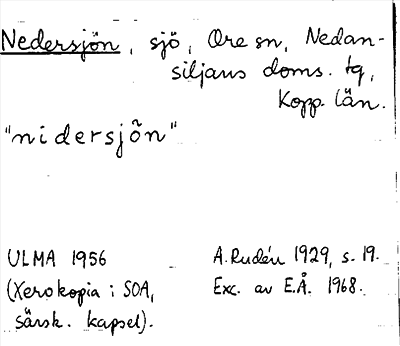 Nedersjön, sjö, Ore sn, Nedan-
siljans doms. tg,
Kopp. län.
"nidersjõn"
ULMA 1956
(Xerokopia i SOA,
särsk. kapsel).
A. Rudén 1929, s. 19.
Exc. av E.Å. 1968.